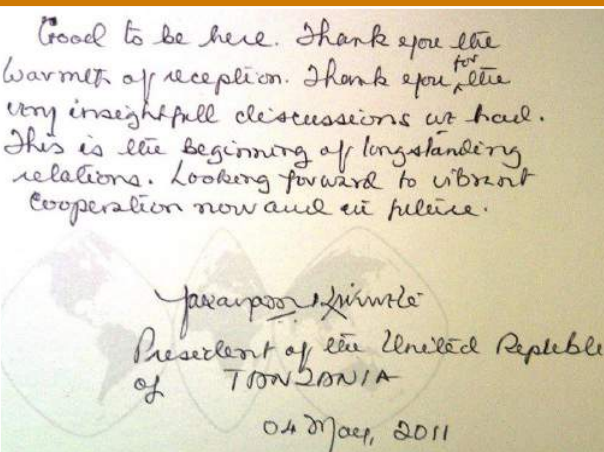 Good to be here. Thank you the
warmth of reception. Thank you for the
very insightfull discussions we had.
This is the beginning of longstanding
relations. Looking forward to vibrant
cooperation now and in future.
President of the United Republic
of TANZANIA
04 May, 2011